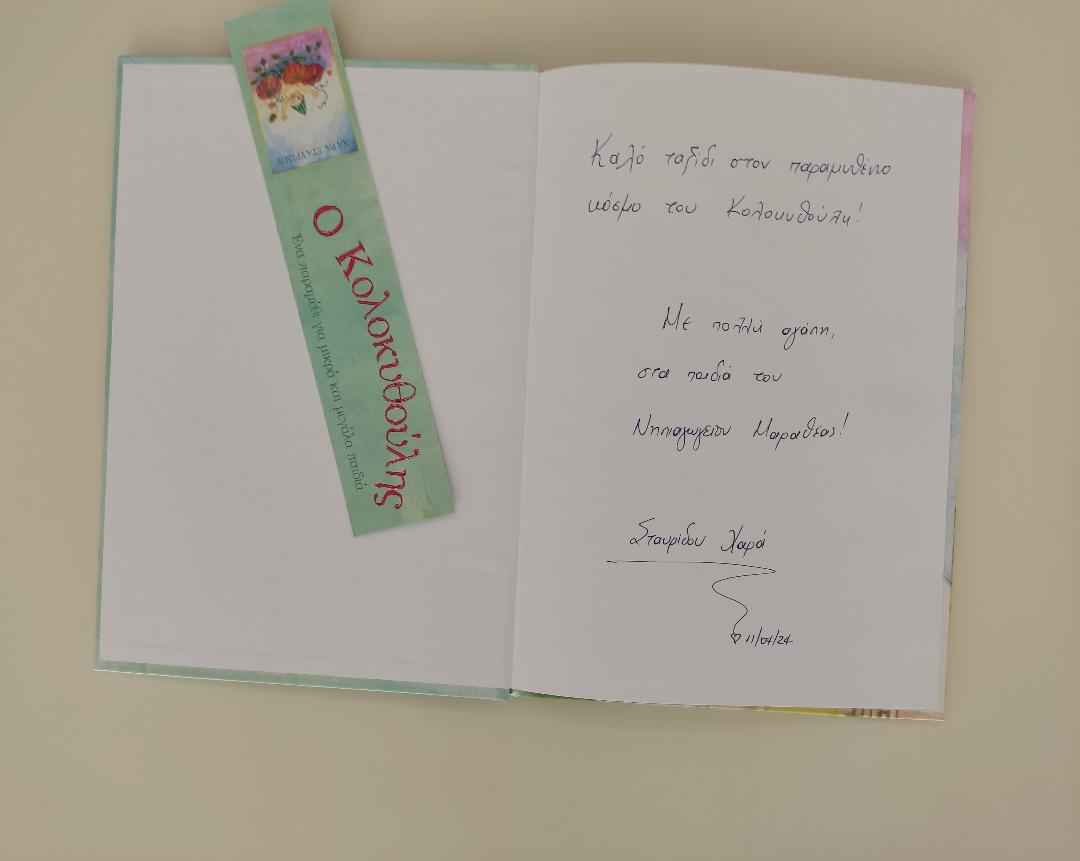 ΧΑΡΑ ΣΤΑΥΡΙΔΟΥ
Ο Κολοκυθούλης
Ένα παραμύθι για μικρά και μεγάλα παιδιά
Καλό ταξίδι στον παραμυθένιο
κόσμο του Κολοκυθούλη!
Με πολλή αγάπη,
στα παιδιά του
Νηπιαγωγείου Μαραθέας!
Σταυρίδου Χαρά
11/04/24